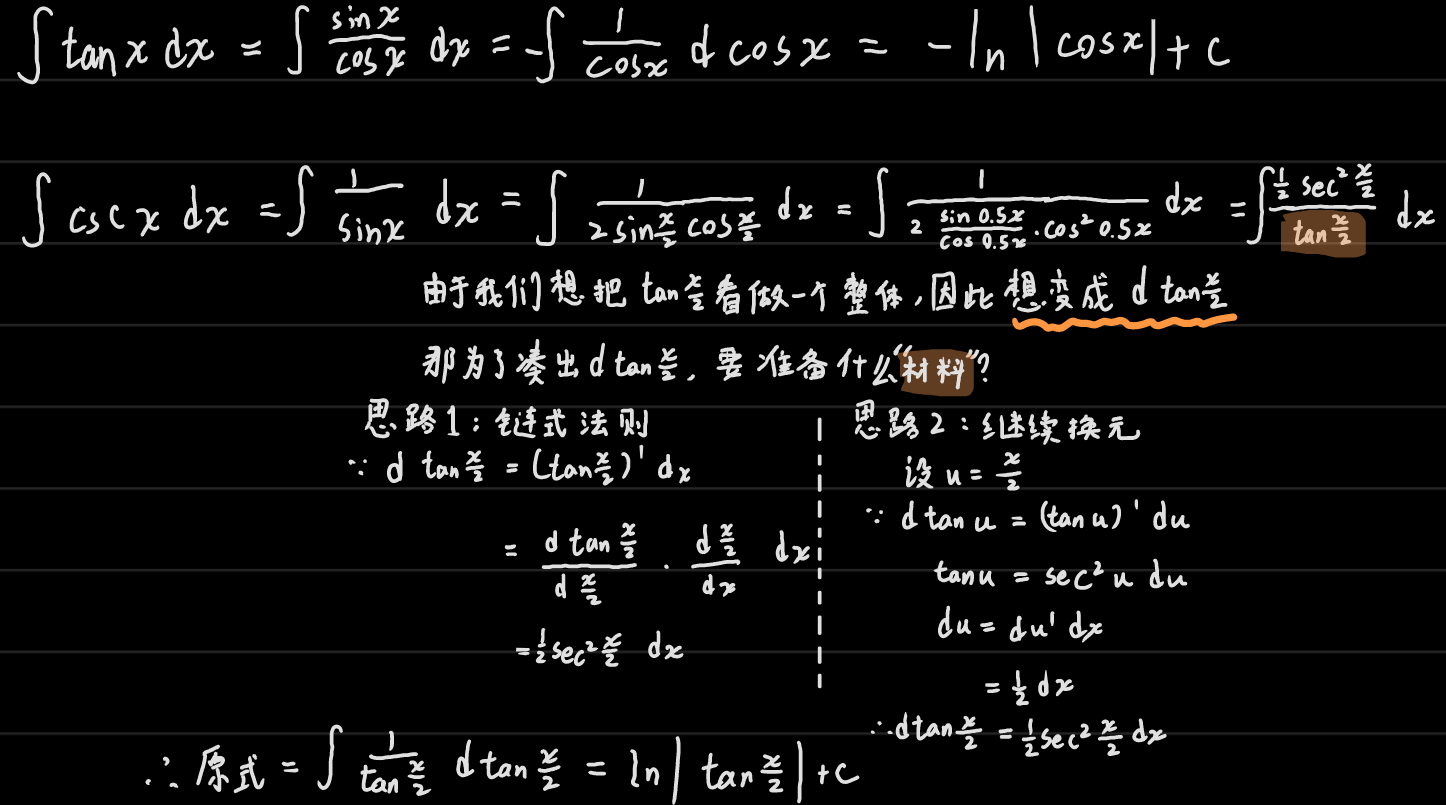 ∫ tan x dx = ∫ sinx/cosx dx = -∫ 1/cosx d cosx = -ln|cosx| + c
∫ csc x dx = ∫ 1/sinx dx = ∫ 1/(2 sin x/2 cos x/2) dx = ∫ 1/(2 (sin 0.5x/cos 0.5x)·cos² 0.5x) dx = ∫ (1/2 sec² x/2)/(tan x/2) dx
由于我们想把 tan x/2 看做一个整体，因此想变成 d tan x/2
那为了凑出 d tan x/2，要准备什么“材料”？
思路1：链式法则
∵ d tan x/2 = (tan x/2)' dx
= (d tan x/2)/(d x/2) · (d x/2)/dx dx
= 1/2 sec² x/2 dx
思路2：继续换元
设 u = x/2
∵ d tan u = (tan u)' du
tan u = sec² u du
du = du' dx
= 1/2 dx
∴ d tan x/2 = 1/2 sec² x/2 dx
∴ 原式 = ∫ 1/(tan x/2) d tan x/2 = ln|tan x/2| + c